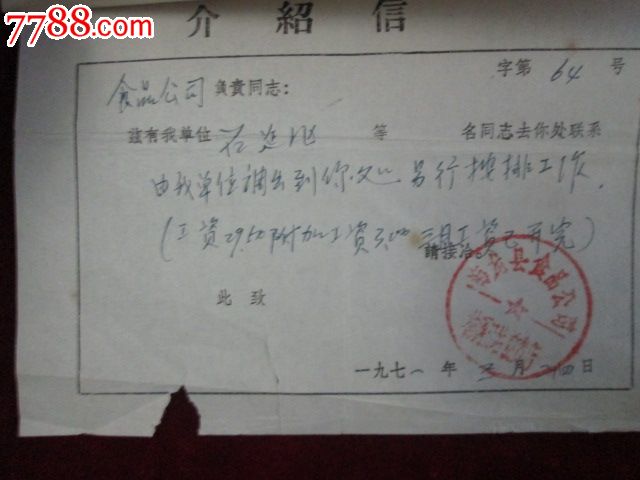 7788.com
介紹信
字第 64 号
食品公司 負責同志：
兹有我單位 等 名同志去你处联系
由我單位調出到你处 另行按排工作.
(工資29.50附加工資3.00 三月工資已开完)
請接洽
此致
县食品公司
一九七一年 三月 十四日